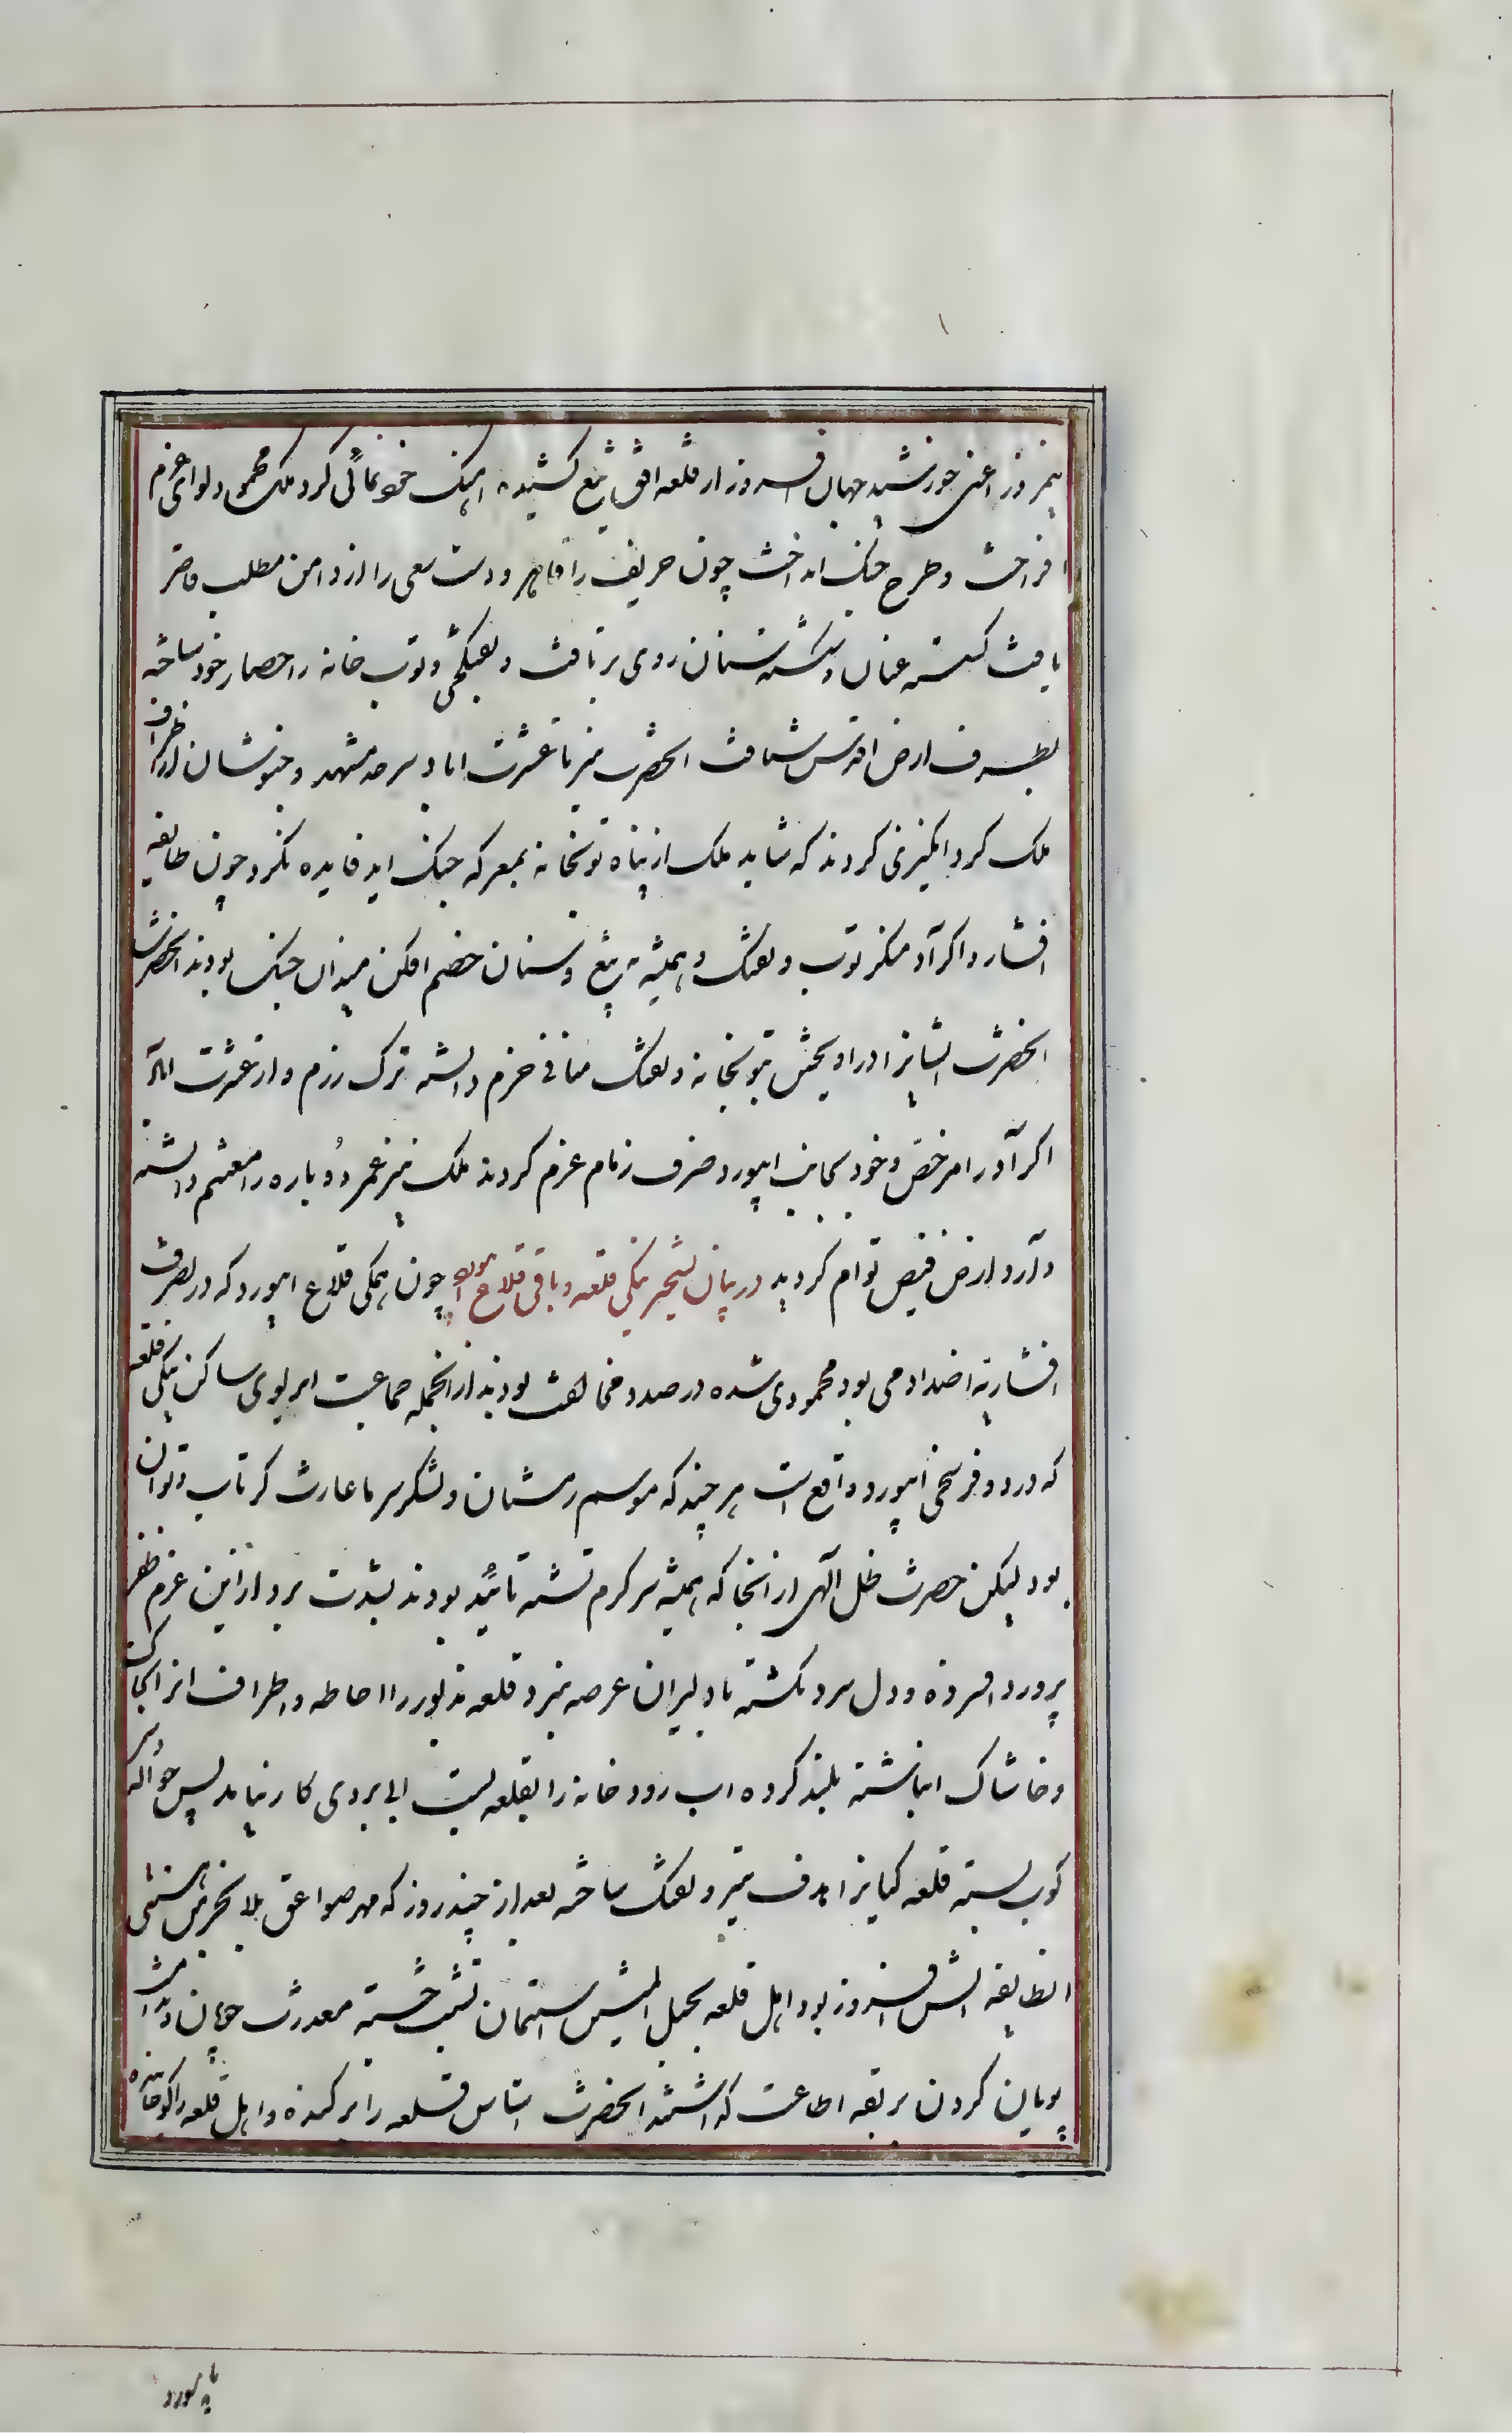 نیمروز اعنی خورشید جهان افروز از قلعه افق تیغ کشیده اهنک خودنمائی کرد ملک محمود لوای عزم
افراخت و طرح جنک انداخت چون حریف را قاهر و دست سعی را از دامن مطلب قاصر
یافت کسسته عنان و شکسته سنان روی برتافت و تفنکچی و توپ خانه را حصار خود ساخته
بطرف ارض اقدس شتافت انحضرت نیز تا عشرت اباد سرحد مشهد و خبوشان از اطراف
ملک کرد انکیزی کردند که شاید ملک از پناه توپخانه بمعرکه جنک اید فایده نکرد چون طایفه
افشار و اکراد منکر توپ و تفنک و همیشه به تیغ و سنان خصم افکن میدان جنک بودند انحضرت
انحضرت ایشانرا در اویختن بتوپخانه و تفنک منافی حزم دانسته ترک رزم و از عشرت اباد
اکراد را مرخص و خود بجانب ابیورد صرف زمام عزم کردند ملک نیز عمر دوباره را مغتنم دانسته
وارد ارض فیض توام کردید در بیان تسخیر ینکی قلعه و باقی قلاع ابیورد چون همکی قلاع ابیورد که در تصرف
افشاریه اضداد می بود محمودی شده در صدد مخالفت بودند از انجمله جماعت امرلوی ساکن ینکی قلعه
که در دو فرسخی ابیورد واقع است هر چند که موسم زمستان و لشکر سرما غارت کر تاب و توان
بود لیکن حضرت ظل الهی از انجا که همیشه سرکرم نشئه تائید بودند بشدت برد از این عزم ظفر
پرورد افسرده و دل سرد نکشته با دلیران عرصه نبرد قلعه مذبور را احاطه و اطراف انرا بخاک
و خاشاک انباشته بلند کرده اب رودخانه را بقلعه بست ابی بر روی کار نیامد پس حواله و سر
کوب بسته قلعه کیانرا هدف تیر و تفنک ساخته بعد از چند روز که مهر صواعق بلا بخرمن هستی
انطایفه اتش افروز بود اهل قلعه بحبل المتین استیمان تشبث جسته معذرت جویان و ندامت
پویان کردن بربقه اطاعت کذاشتند انحضرت اساس قلعه را برکنده و اهل قلعه را کوچانده
بابیورد